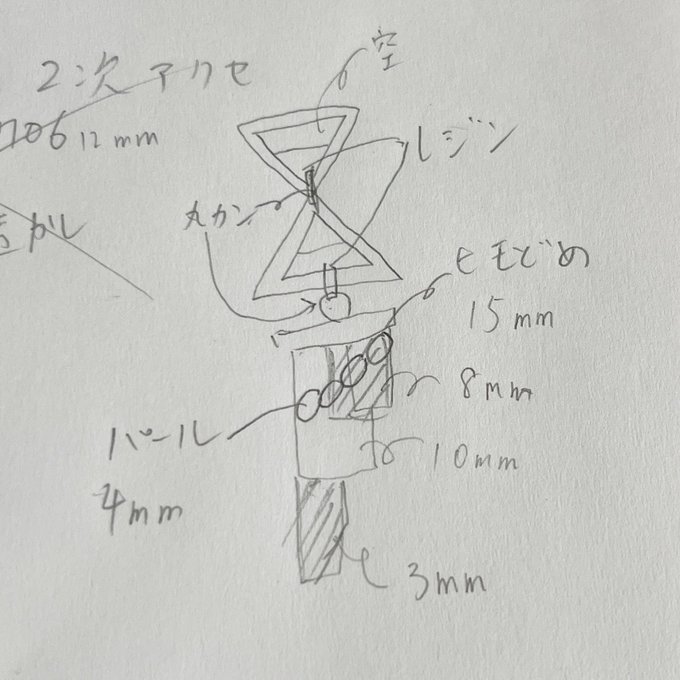 空
2次 アクセ
706 12mm
レジン
丸カン
ヒモどめ
15mm
8mm
パール
4mm
10mm
3mm